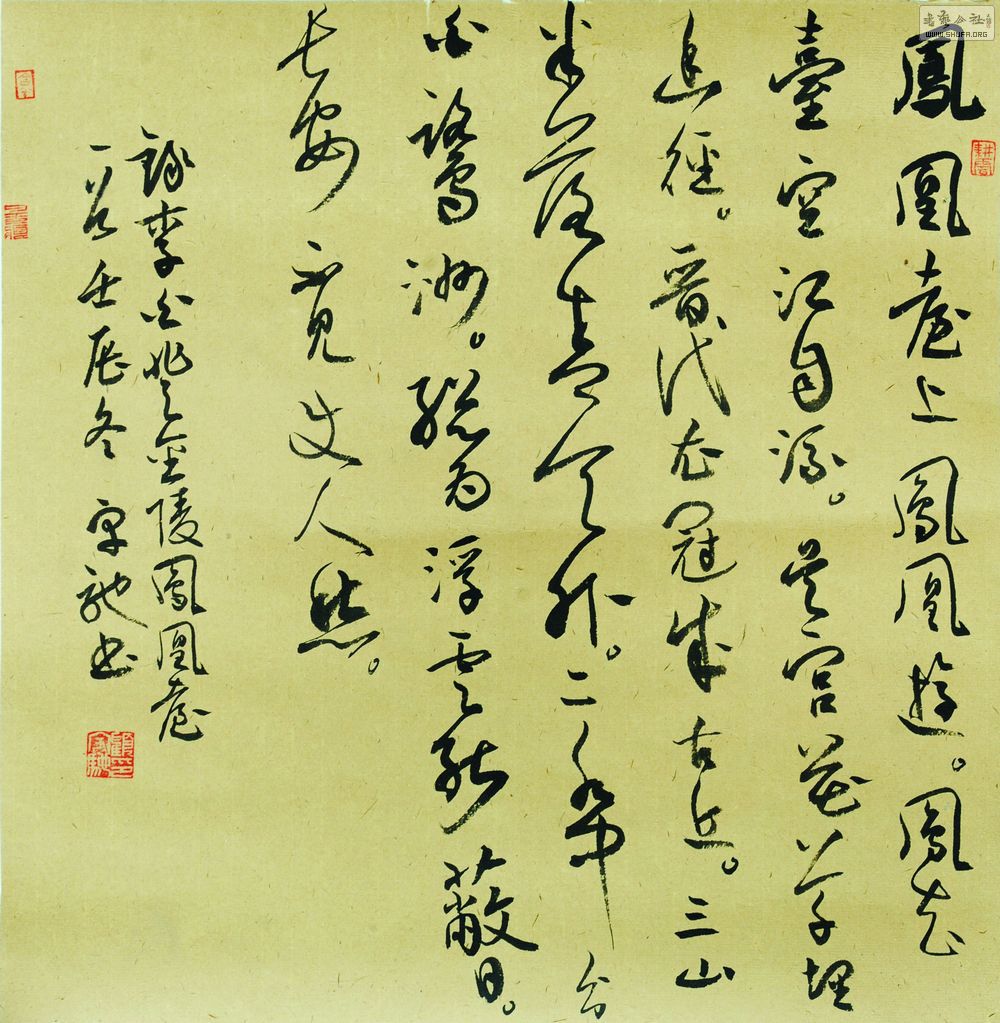 鳳凰臺上鳳凰遊。鳳去
臺空江自流。吳宮花草埋
幽徑。晉代衣冠成古丘。三山
半落青天外。二水中分
白鷺洲。總為浮雲能蔽日。
長安不見使人愁。
錄李白登金陵鳳凰臺
一首壬辰冬 馳書
耕雲
書法公社
WWW.SHUFA.ORG